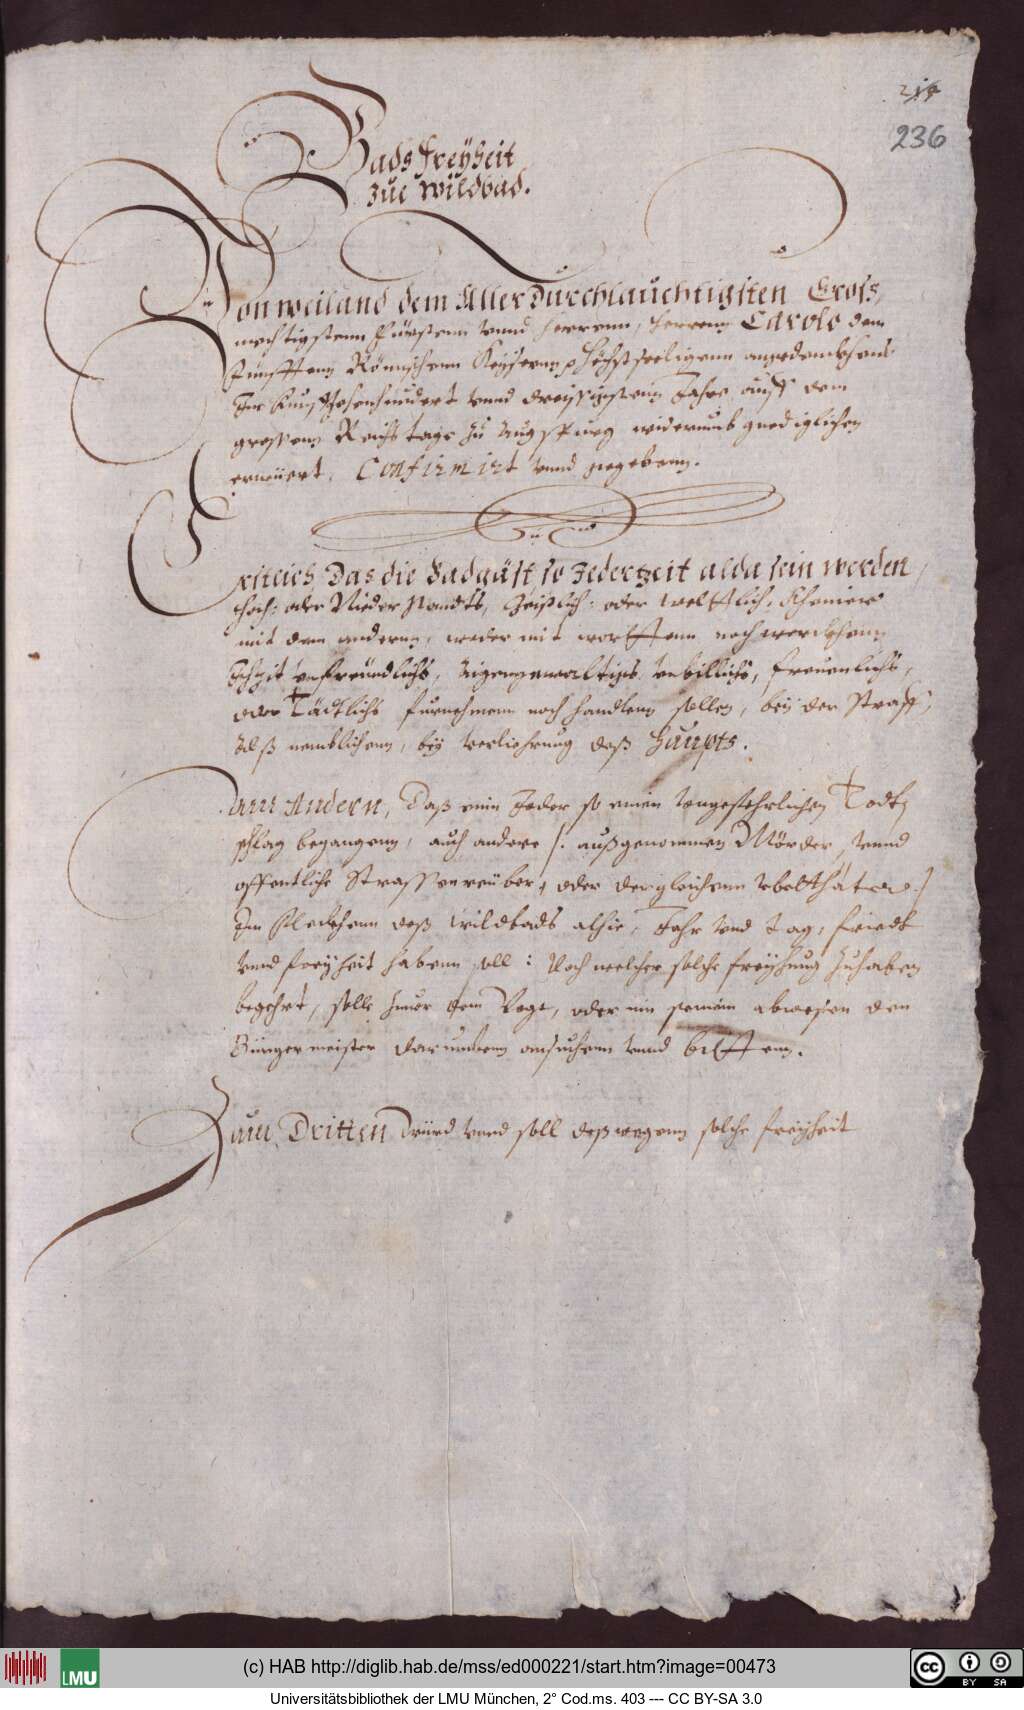 236
Bads freÿheit
zue wildbad.
Von weiland dem Allerdurchlauchtigsten Gross,
mechtigstenn Fürstenn vnnd Herrenn, Herrenn Carolo dem
Fünfftenn Römischenn Keÿsernn Höchstseeligenn angedenckhens
Im funffzehenhundert vnnd dreissigstenn Jahre auff dem
grossenn Reichstage zu Augspurg widerumb gnediglichen
erneüert, Confirmirt vnnd gegebenn.
Erstlich Das die Badgäst so Jederzeit alda sein werden,
Hoch: oder Nieder standts, Geistlich: oder weltlich, Kheiner
mit dem anderen, weder mit wortten noch werckhenn
vnfreündlichs, Aigengwaltigs vnbillichs, freuenlichs,
oder Tädtlichs fürnehmenn noch handlenn sollen, beÿ der Straff,
Alß nemblichenn, beÿ verliehrung deß Haupts.
Zum Andern, Daß ein Jeder so einen vngefehrlichen Todt
schlag begangenn, auch andere /: außgenommen Mörder vnnd
offentliche Strassenreüber, oder dergleichenn vbelthäter :/
Im Fleckhenn deß wildbads alhie, Jahr vnd tag, friedt
vnnd freÿheit habenn soll: Noch welcher solche freÿhung zuhaben
begehrt, solle zuuor dem Vogt, oder inn seinem abwesen den
Bürgermeister darumbenn ansuchenn vnnd bittenn.
Zum Dritten Würd vnnd soll deßwegenn solche freÿheit
(c) HAB http://diglib.hab.de/mss/ed000221/start.htm?image=00473
LMU
CC BY SA
Universitätsbibliothek der LMU München, 2° Cod.ms. 403 --- CC BY-SA 3.0